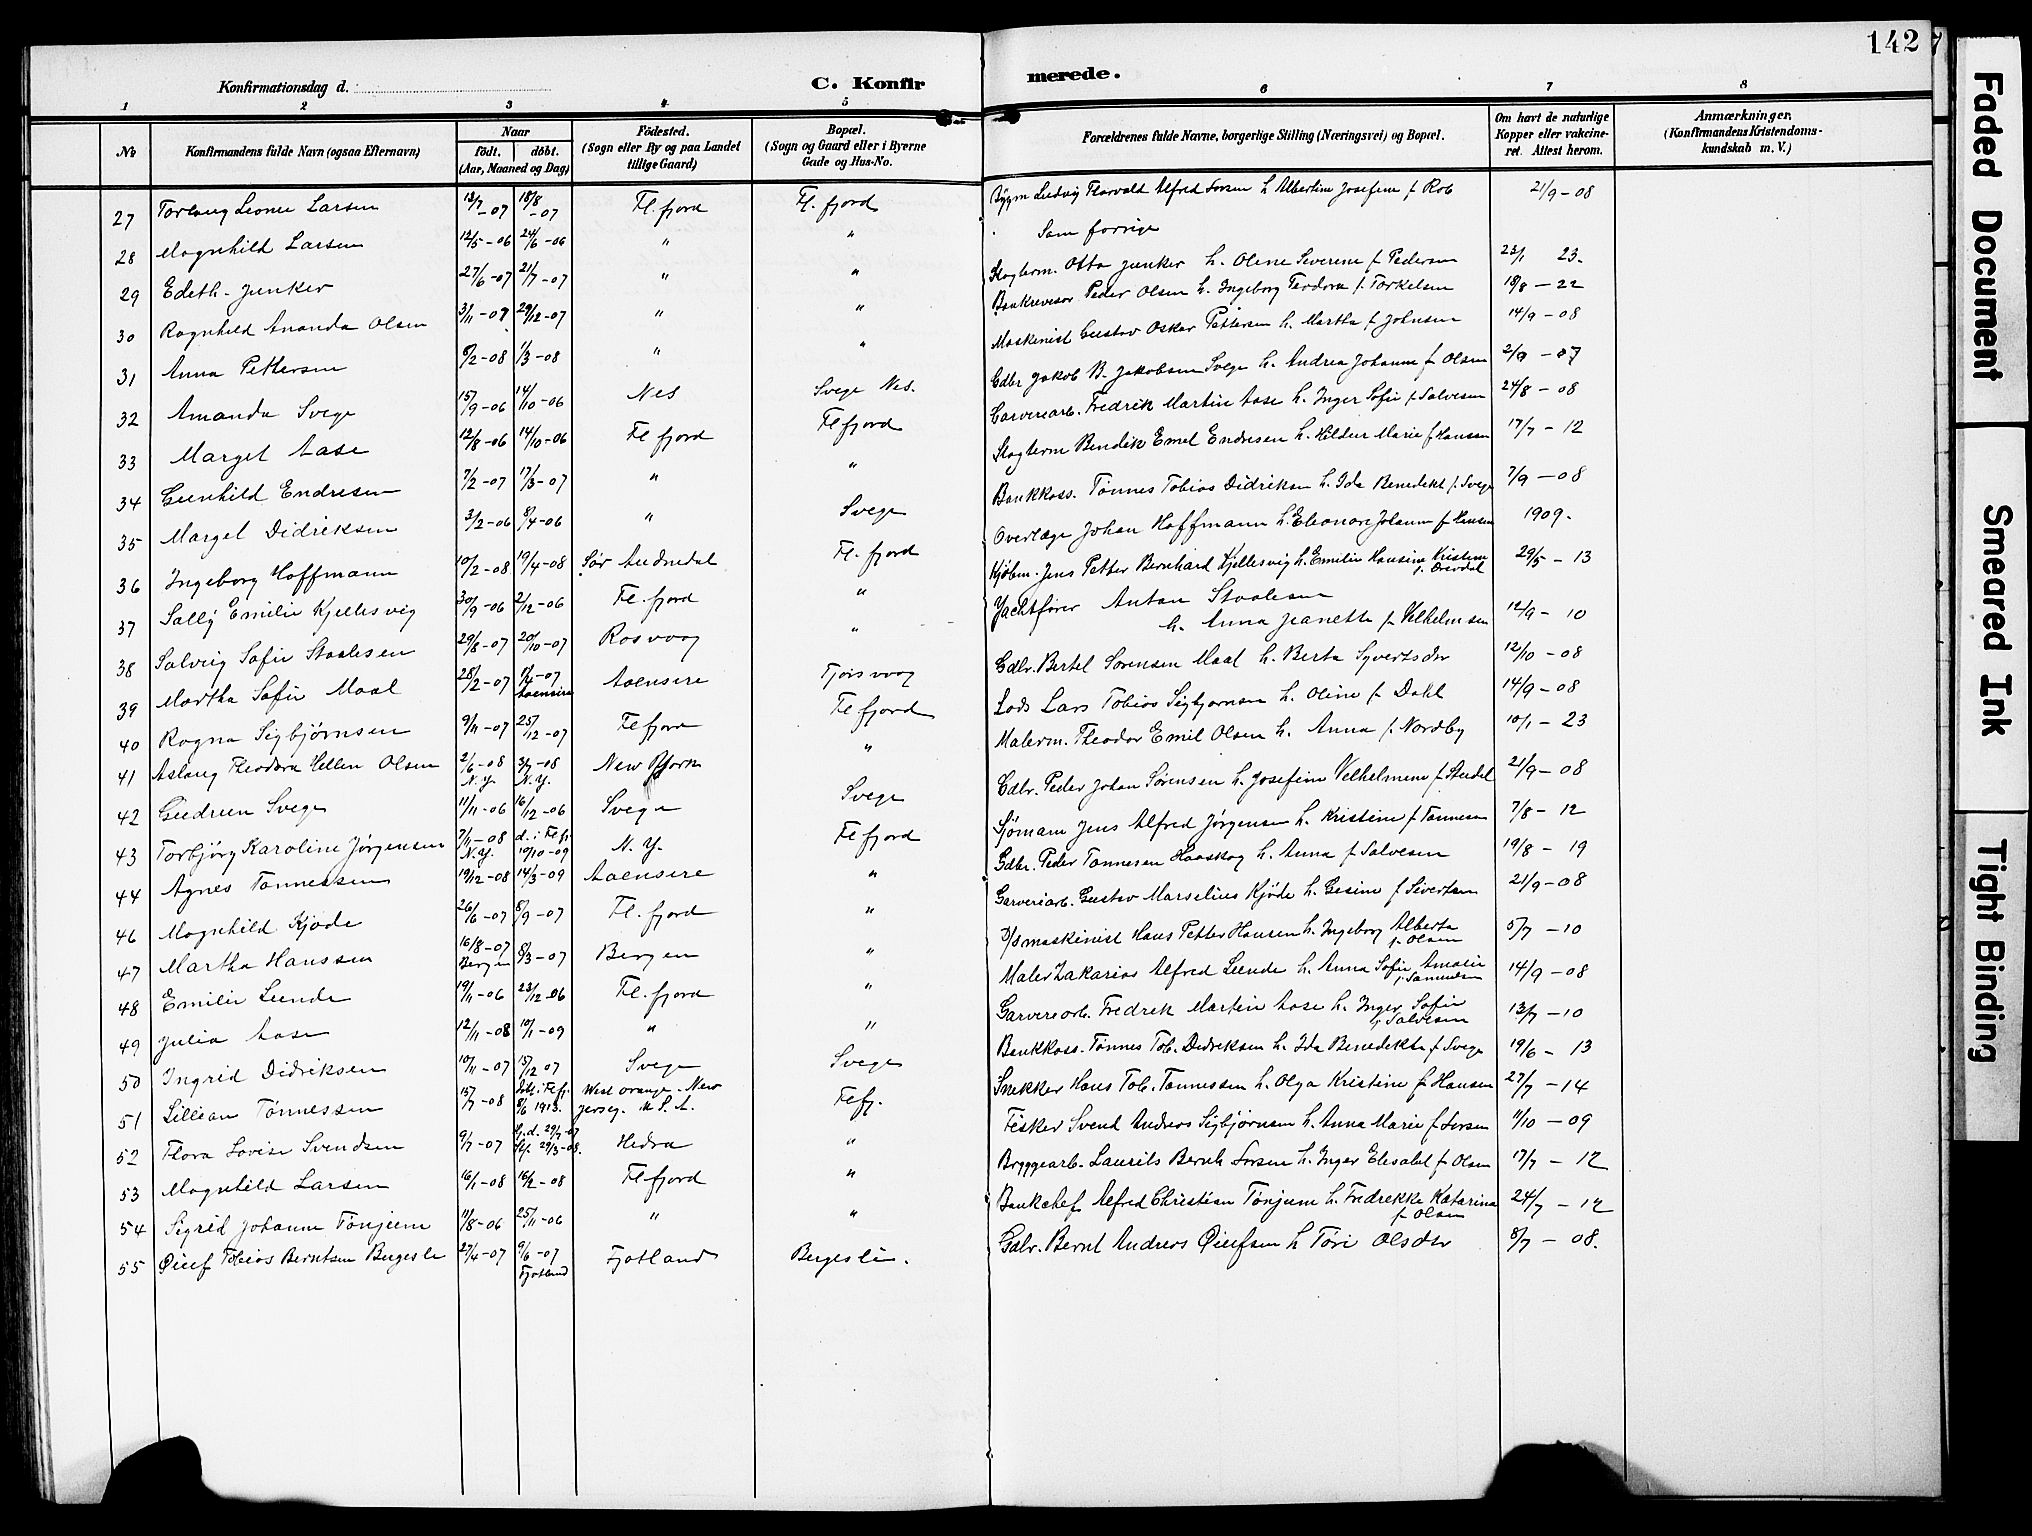 142
Konfirmationsdag d.
C. Konfir
merede.
1 2 3 4 5 6 7 8
No
Konfirmandens fulde Navn (ogsaa Efternavn)
Naar
født. døbt.
(Aar, Maaned og Dag)
Födested.
(Sogn eller By og paa Landet
tillige Gaard)
Bopæl.
(Sogn og Gaard eller i Byerne
Gade og Hus-No.
Forældrenes fulde Navne, borgerlige Stilling (Næringsvei) og Bopæl.
Om havt de naturlige
Kopper eller vakcine-
ret. Attest herom.
Anmærkninger.
(Konfirmandens Kristendoms-
kundskab m. V.)
27 Larsen 13/7-07 18/8-07 Fl. fjord Fl. fjord Ludvig Thorvald Alfred Larsen h. Albertine Josefine f. Rob 21/9-08
28 Magnhild Larsen 12/5-06 24/6-06 " " Som forrige
29 Edith Junker 27/6-07 21/7-07 " " Slagterm. Otto Junker h. Oline Severine f. Pedersen 23/1 23.
30 Ragnhild Ananda Olsen 3/11-07 29/12-07 " " Bankrevisor Peder Olsen h. Ingeborg Teodora f. Torkelsen 18/8-22
31 Anna Pettersen 8/2-08 1/3-08 " " Maskinist Gustav Oskar Pettersen h. Martha f. Johnsen 14/9-08
32 Amanda Svege 15/9-06 14/10-06 Nes Svege Nes. Gdbr Jakob B. Jakobsen Svege h. Andrea Johanne f. Olsen 2/9-07
33 Marget Aase 12/8-06 14/10-06 Fl. fjord Fl fjord Garveriarb. Fredrik Martin Aase h. Inger Sofie f. Salvesen 24/8-08
34 Gunhild Endresen 7/2-07 17/3-07 " " Slagterm Bendik Emil Endresen h. Hildur Marie f. Hansen 17/7-12
35 Marget Didriksen 3/2-06 8/4-06 " Svege Bankkass. Tønnes Tobias Didriksen h. Ida Benedikt f. Svege 7/9-08
36 Ingeborg Hoffmann 10/2-08 19/4-08 Sør Audnedal Fl. fjord Overlæge Johan Hoffmann h. Eleonore Johanne f. Hansen 1909.
37 Sally Emilie Kjellesvig 30/9-06 2/12-06 Fl. fjord " Kjøbm. Jens Petter Bernhard Kjellesvig h. Emilie Hansine Kristine 29/5-13
38 Solveig Sofie Staalesen 29/8-07 20/10-07 Rosvaag " Yachtfører Anton Staalesen
h. Anna Jeanette f. Vilhelmsen 12/9-10
39 Martha Sofie Maal 28/2-07 -07 Aaensire Aaensire Tjørsvaag Gdbr. Bertel Sørensen Maal h. Berta Syvertsdtr 12/10-08
40 Ragna Sigbjørnsen 9/11-07 25/12-07 Flefjord Flefjord Lods Lars Tobias Sigbjørnsen h. Oline f. Dahl 14/9-08
41 Aslaug Theodora Hellen Olsen 2/6-08 N.Y. 3/7-08 N.Y. New York " Malerm. Theodor Emil Olsen h. Anna f. Nordby 10/1-23
42 Gudrun Svege 11/11-06 16/12-06 Svege Svege Gdbr. Peder Johan Sørensen h. Josefine Vilhelmine f. 21/9-08
43 Torbjørg Karoline Jørgensen 7/11-08 N.Y. d. i Flefj. 10/10-09 N. Y. Flefjord Sjømann Jens Alfred Jørgensen h. Kristine f. Tønnesen 7/8-12
44 Agnes Tønnessen 19/12-08 14/3-09 Aaensire " Gdbr. Peder Tønnesen Haaskog h. Anna f. Salvesen 19/8-19
46 Magnhild Kjøde 26/6-07 8/9-07 Fl. fjord " Garveriarb. Gustav Marselius Kjøde h. Gesine f. Sivertsen 21/9-08
47 Martha Hanssen 16/8-07 Bergen 8/3-07 Bergen " D/S maskinist Hans Petter Hansen h. Ingeborg Alberta f. Olsen 5/7-10
48 Emilie Lunde 19/11-06 23/12-06 Fl. fjord " Maler Zakarias Alfred Lunde h. Anna Sofie Amalie f. Samuelsen 14/9-08
49 Julia Aase 12/11-08 10/1-09 " " Garveriarb. Fredrik Martin Aase h. Inger Sofie f. Salvesen 13/7-10
50 Ingrid Didriksen 10/11-07 15/12 07 Svege Svege Bankkass. Tønnes Tob. Didriksen h. Ida Benedikta f. Svege 19/6-13
51 Lillian Tønnessen 15/7-08 Døbt i Flefj. 8/6 1913. West Orange. New Jersey. U. S. A. Flefj. Snekker Hans Tob. Tønnessen h. Olga Kristine f. Hansen 27/7-14
52 Flora Lovise Svendsen 9/7-07 Hj.d. 29/7-07 29/3-08. Hidra " Fisker Svend Andreas Sigbjørnsen h. Anna Marie f. Larsen 11/10-09
53 Magnhild Larsen 16/1-08 16/2-08 Flefjord " Bryggearb. Laurits Bernh Larsen h. Inger Elisabet f. Olsen 17/7-12
54 Sigrid Johanne Tønjum 11/8-06 25/11-06 " " Bankchef Alfred Christian Tønjum h. Fredrekke Katarina f. Olsen 24/7-12
55 Tobias Berntsen Bergesli 27/4-07 9/6-07 Fjotland Fjotland Bergesli. Bernt Andreas h Tøri Olsdtr 8/7-08.
Faded Document
Smeared Ink
Tight Binding